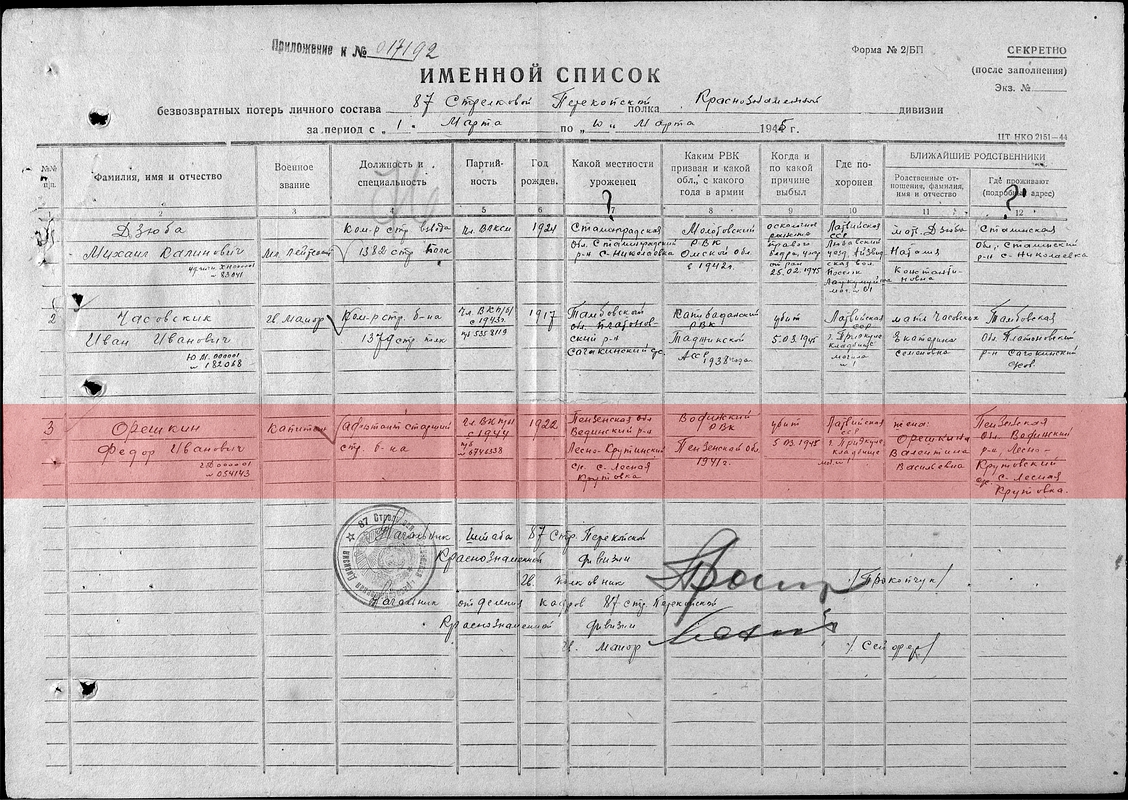 Приложение к № 017192
Форма № 2/БП
СЕКРЕТНО
(после заполнения)
Экз. №
ИМЕННОЙ СПИСОК
безвозвратных потерь личного состава 87 Стрелковой Перекопской полка Краснознаменной дивизии
за период с „1" Марта по „10" Марта 1945 г.
ЦТ НКО 2151—44
№№ п/п.
Фамилия, имя и отчество
Военное звание
Должность и специальность
Партий-ность
Год рожден.
Какой местности уроженец
Каким РВК призван и какой обл., с какого года в армии
Когда и по какой причине выбыл
Где по-хоронен
БЛИЖАЙШИЕ РОДСТВЕННИКИ
Родственные от-ношения, фамилия, имя и отчество
Где проживают (подробный адрес)
2 3 5 6 7 8 9 10 11 12
Дзюба
Михаил Калинович
Мл. Лейтенант
Ком-р стр. взвода
1382 стр. полк
Чл. ВЛКСМ
1924
Сталинградская
обл. Сталинградский
р-н с. Николаевка
Молотовский
РВК
Омской обл
в 1942г.
осколочное
25.02.1945
Латвийская
ССР
мать Дзюба
Наталия
Константи-
новна
Сталинская
обл. Сталинский
р-н с. Николаевка
2
Часовских
Иван Иванович
№ 182068
Гв. Майор
Ком-р стр. б-на
1379 стр. полк
Чл. ВКП/б/
с 1943г.
1917
Тамбовская
обл. Платонов-
ский р-н
РВК
1938 года
убит
5.03.1945
Латвийская
ССР
г. Приекуле
кладбище
могила
№ 1
мать Часовских
Екатерина
Семеновна
Тамбовская
обл. Платоновский
3
Орешкин
Федор Иванович
№ 054143
Капитан
Адъютант старший
стр. б-на
Чл. ВКП/б/
с 1944
п/б
№ 6746338
1922
Пензенская обл
Лесно-Крутинский
с. Лесная
Крутовка
РВК
Пензенской обл.
1941г.
убит
5.03.1945
Латвийская
ССР
г. Приекуле
кладбище
жена:
Орешкина
Валентина
Васильевна
Пензенская
р-н, Лесно-
Крутовский
с. Лесная
Крутовка.
Начальник Штаба 87 Стр. Перекопской
Краснознаменной дивизии
Гв. полковник /Прокопчук/
Начальник отделения кадров 87 стр. Перекопской
Краснознаменной дивизии
Гв. Майор